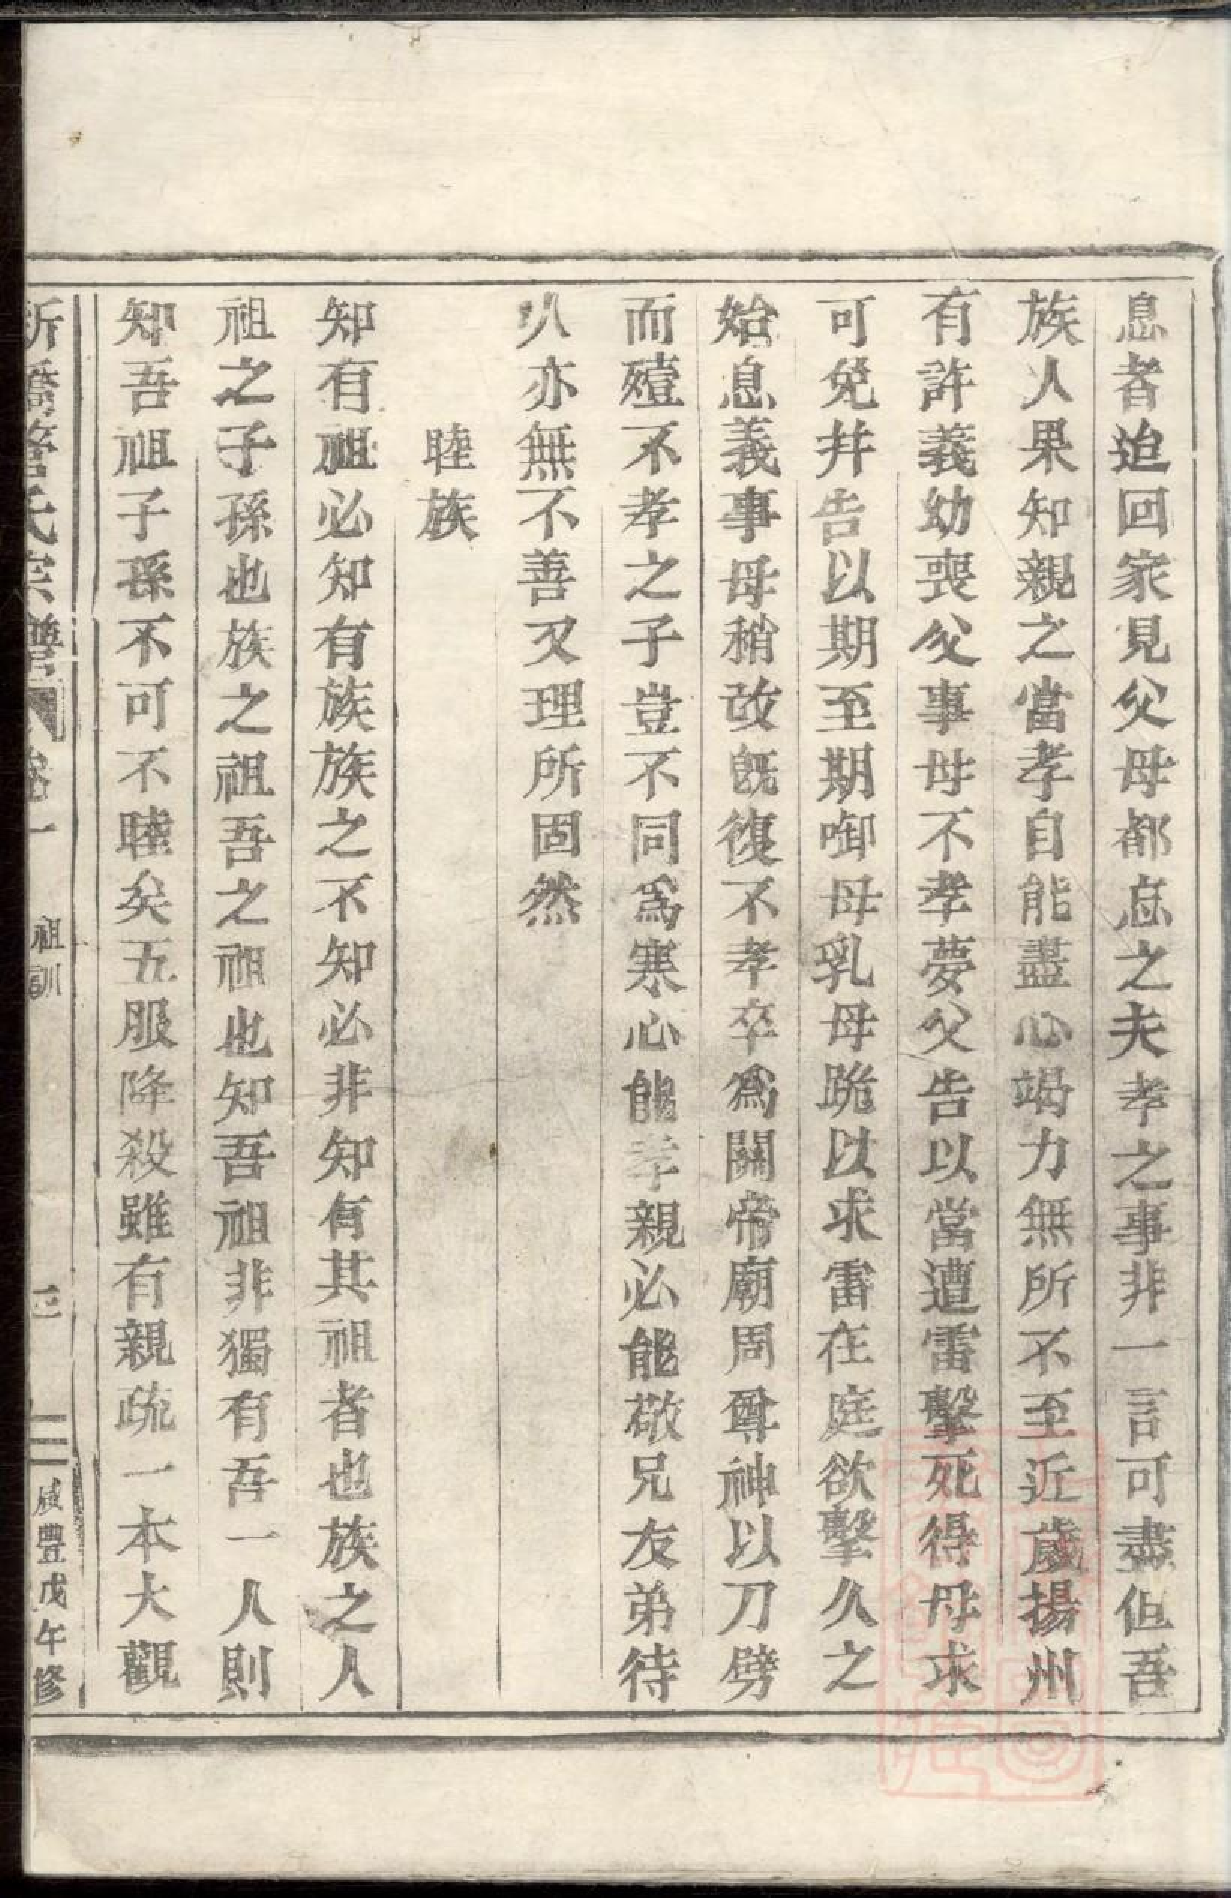 息者迨回家見父母都忘之夫孝之事非一言可盡但吾
族人果知親之當孝自能盡心竭力無所不至近歲揚州
有許義幼喪父事母不孝夢父告以當遭雷擊死得母求
可免并告以期至期啣母乳母跪以求雷在庭欲擊久之
始息義事母稍改旣復不孝卒爲關帝廟周尊神以刀劈
而殪不孝之子豈不同爲寒心能孝親必能敬兄友弟待
人亦無不善又理所固然
睦族
知有祖必知有族族之不知必非知有其祖者也族之人
祖之子孫也族之祖吾之祖也知吾祖非獨有吾一人則
知吾祖子孫不可不睦矣五服降殺雖有親疏一本大觀
新橋管氏宗譜 卷一 祖訓 咸豐戊午修